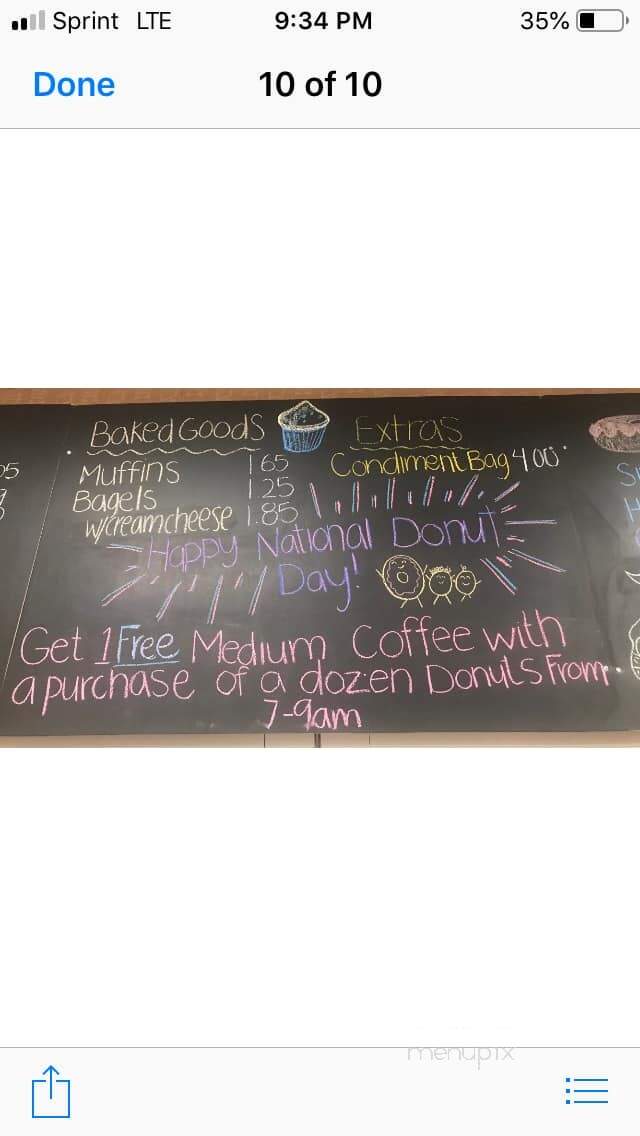 Sprint LTE 9:34 PM 35%
Done 10 of 10
Baked Goods Extras
Muffins 1.65 Condiment Bag 4.00
Bagels 1.25
w/creamcheese 1.85
Happy National Donut
Day!
Get 1 Free Medium Coffee with
a purchase of a dozen Donuts From
7-9am
menupix